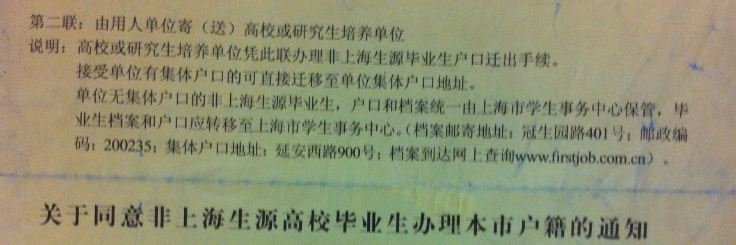 第二联：由用人单位寄（送）高校或研究生培养单位
说明：高校或研究生培养单位凭此联办理非上海生源毕业生户口迁出手续。
接受单位有集体户口的可直接迁移至单位集体户口地址。
单位无集体户口的非上海生源毕业生，户口和档案统一由上海市学生事务中心保管，毕
业生档案和户口应转移至上海市学生事务中心。（档案邮寄地址：冠生园路401号；邮政编
码：200235；集体户口地址：延安西路900号；档案到达网上查询www.firstjob.com.cn）。
关于同意非上海生源高校毕业生办理本市户籍的通知